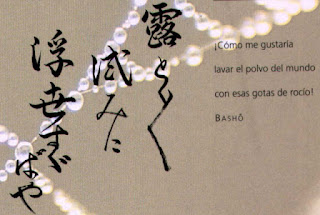 露とく〱
試みに
浮世すゝが
ばや
¡Cómo me gustaría
lavar el polvo del mundo
con esas gotas de rocío!
BASHÔ